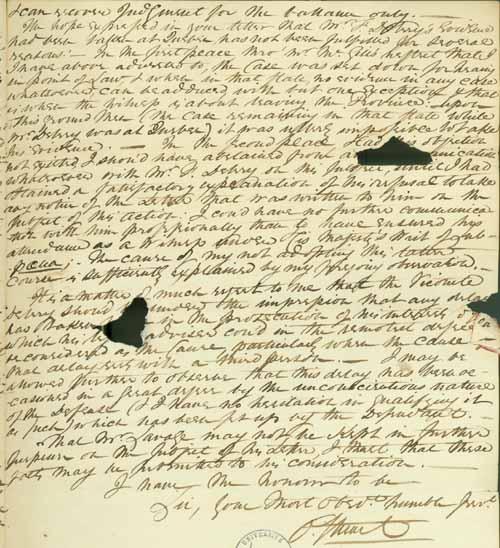 I can recover Judgment for the balance only. —
The hope expressed in your letter that Mr. P. Debry's Evidence
had been taken at Quebec has not been fulfilled for several
reasons. In the first place
I have above adverted to, the Case was set down for
in point of Law, & when in that State, no evidence in any case
whatsoever can be adduced with but one exception & that
is when the witness is about leaving the Province. upon
this ground then (the case remaining in that state while
Mr. Debry was at Quebec) it was utterly impossible to take
his Evidence. — In the second place Had this objection
not existed I should have abstained from any
whatsoever with Mr. P. Debry on this subject, until I had
obtained a satisfactory explanation of his refusal to take
any notice of the letter that was written to him on the
subject of this action. I could have no further communica
tion with him professionally than to have ensured his
attendance as a Witness under His Majesty's Writ of Sub-
poena; The cause of my not adopting this latter
Course is sufficiently explained by my foregoing observation. —
It is a matter of much regret to me that the Vicomte
Debry should the impression that any delay
has in the prosecution of his interests
which his advices could in the remotest degree
be considered as the Cause particularly when the cause
that delay lies with a third person. — I may be
allowed further to observe that this delay has been oc-
casioned in a great degree by the unconscientious nature
of the Defence (& I have no hesitation in qualifying it
as such) which has been set up by the Defendant. —
That Mr. Savage may not be kept in further
suspense on the subject of his letter, I shall that these
facts may be submitted to his consideration. —
I have the honor to be
Sir, your Most Obedt. humble Servt.